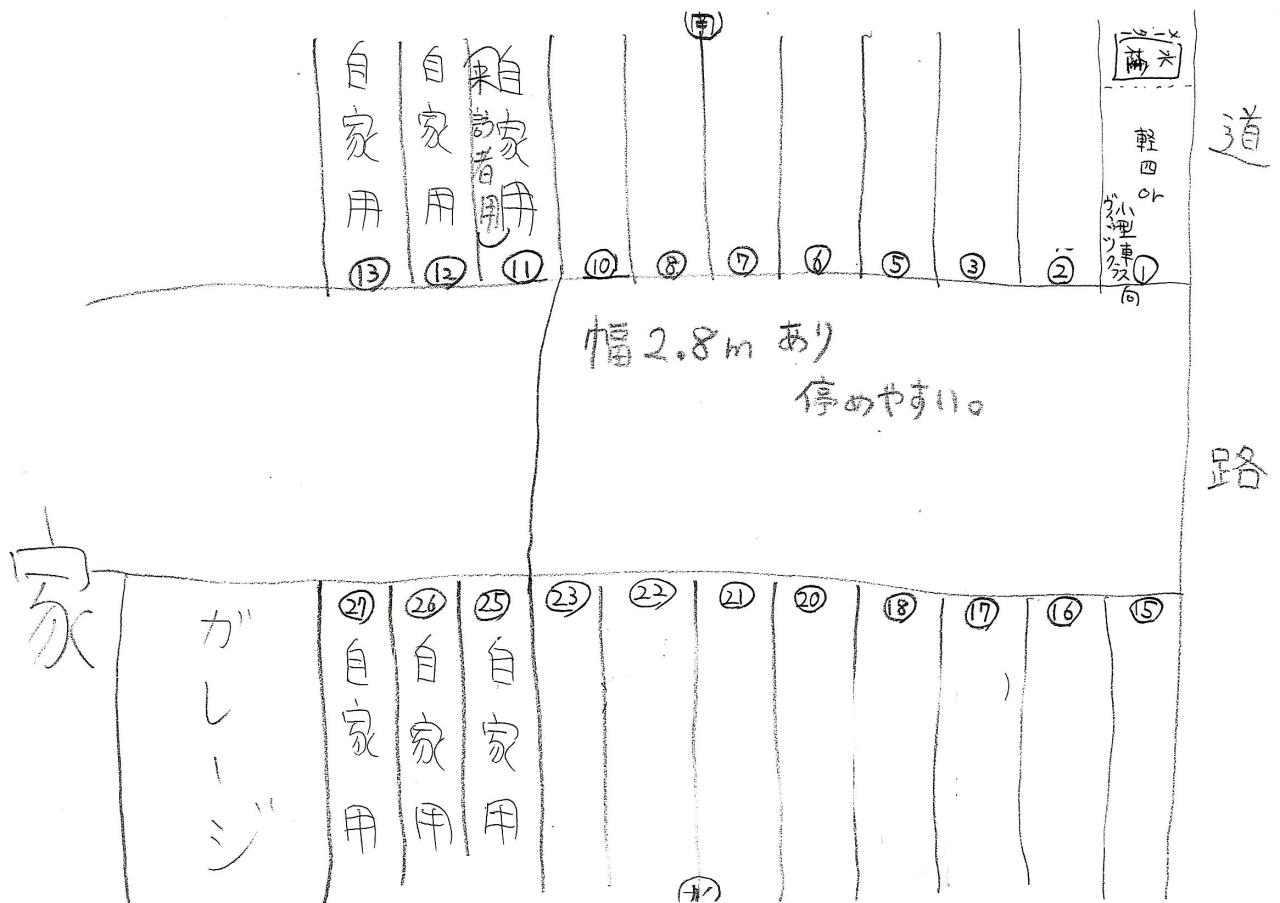 南
自家用
自家用
来訪者用
自家用
軽四or
小型車
ヴィッツクラス
向
道
路
⑬
⑫
⑪
⑩
⑧
⑦
⑥
⑤
③
②
①
幅2.8mあり
停めやすい。
家
ガレージ
㉗
㉖
㉕
㉓
㉒
㉑
⑳
⑱
⑰
⑯
⑮
自家用
自家用
自家用